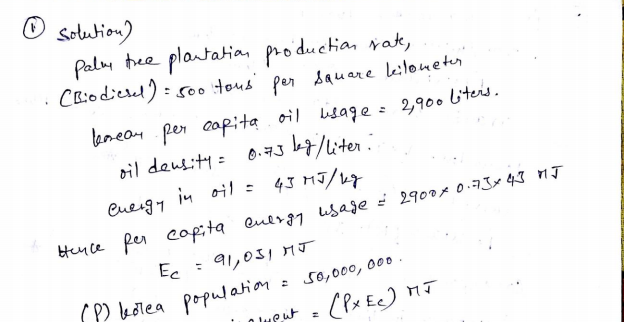 ① Solution)
Palm tree plantation production rate,
(Biodiesel) = 500 tons per square kilometer
korean per capita oil usage = 2,900 liters.
oil density = 0.73 kg/liter.
energy in oil = 43 MJ/kg
Hence per capita energy usage = 2900 x 0.73 x 43 MJ
Ec = 91,031 MJ
(P) korea population = 50,000,000.
= (P x Ec) MJ